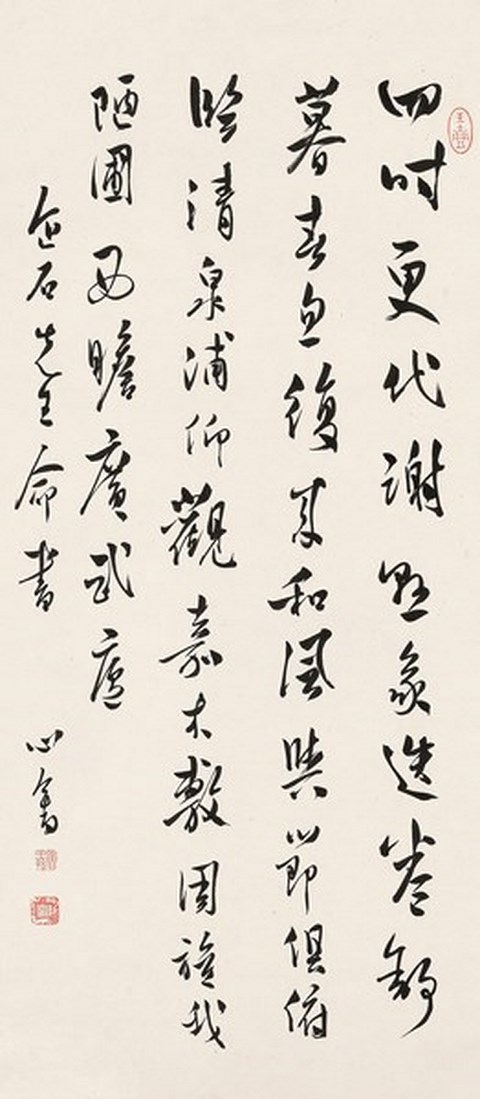 四時更代謝懸象迭卷舒
暮春忽復來和風與節俱俯
臨清泉浦仰觀嘉木敷周旋我
陋圃西瞻廣武廬
企石先生命書 心畬